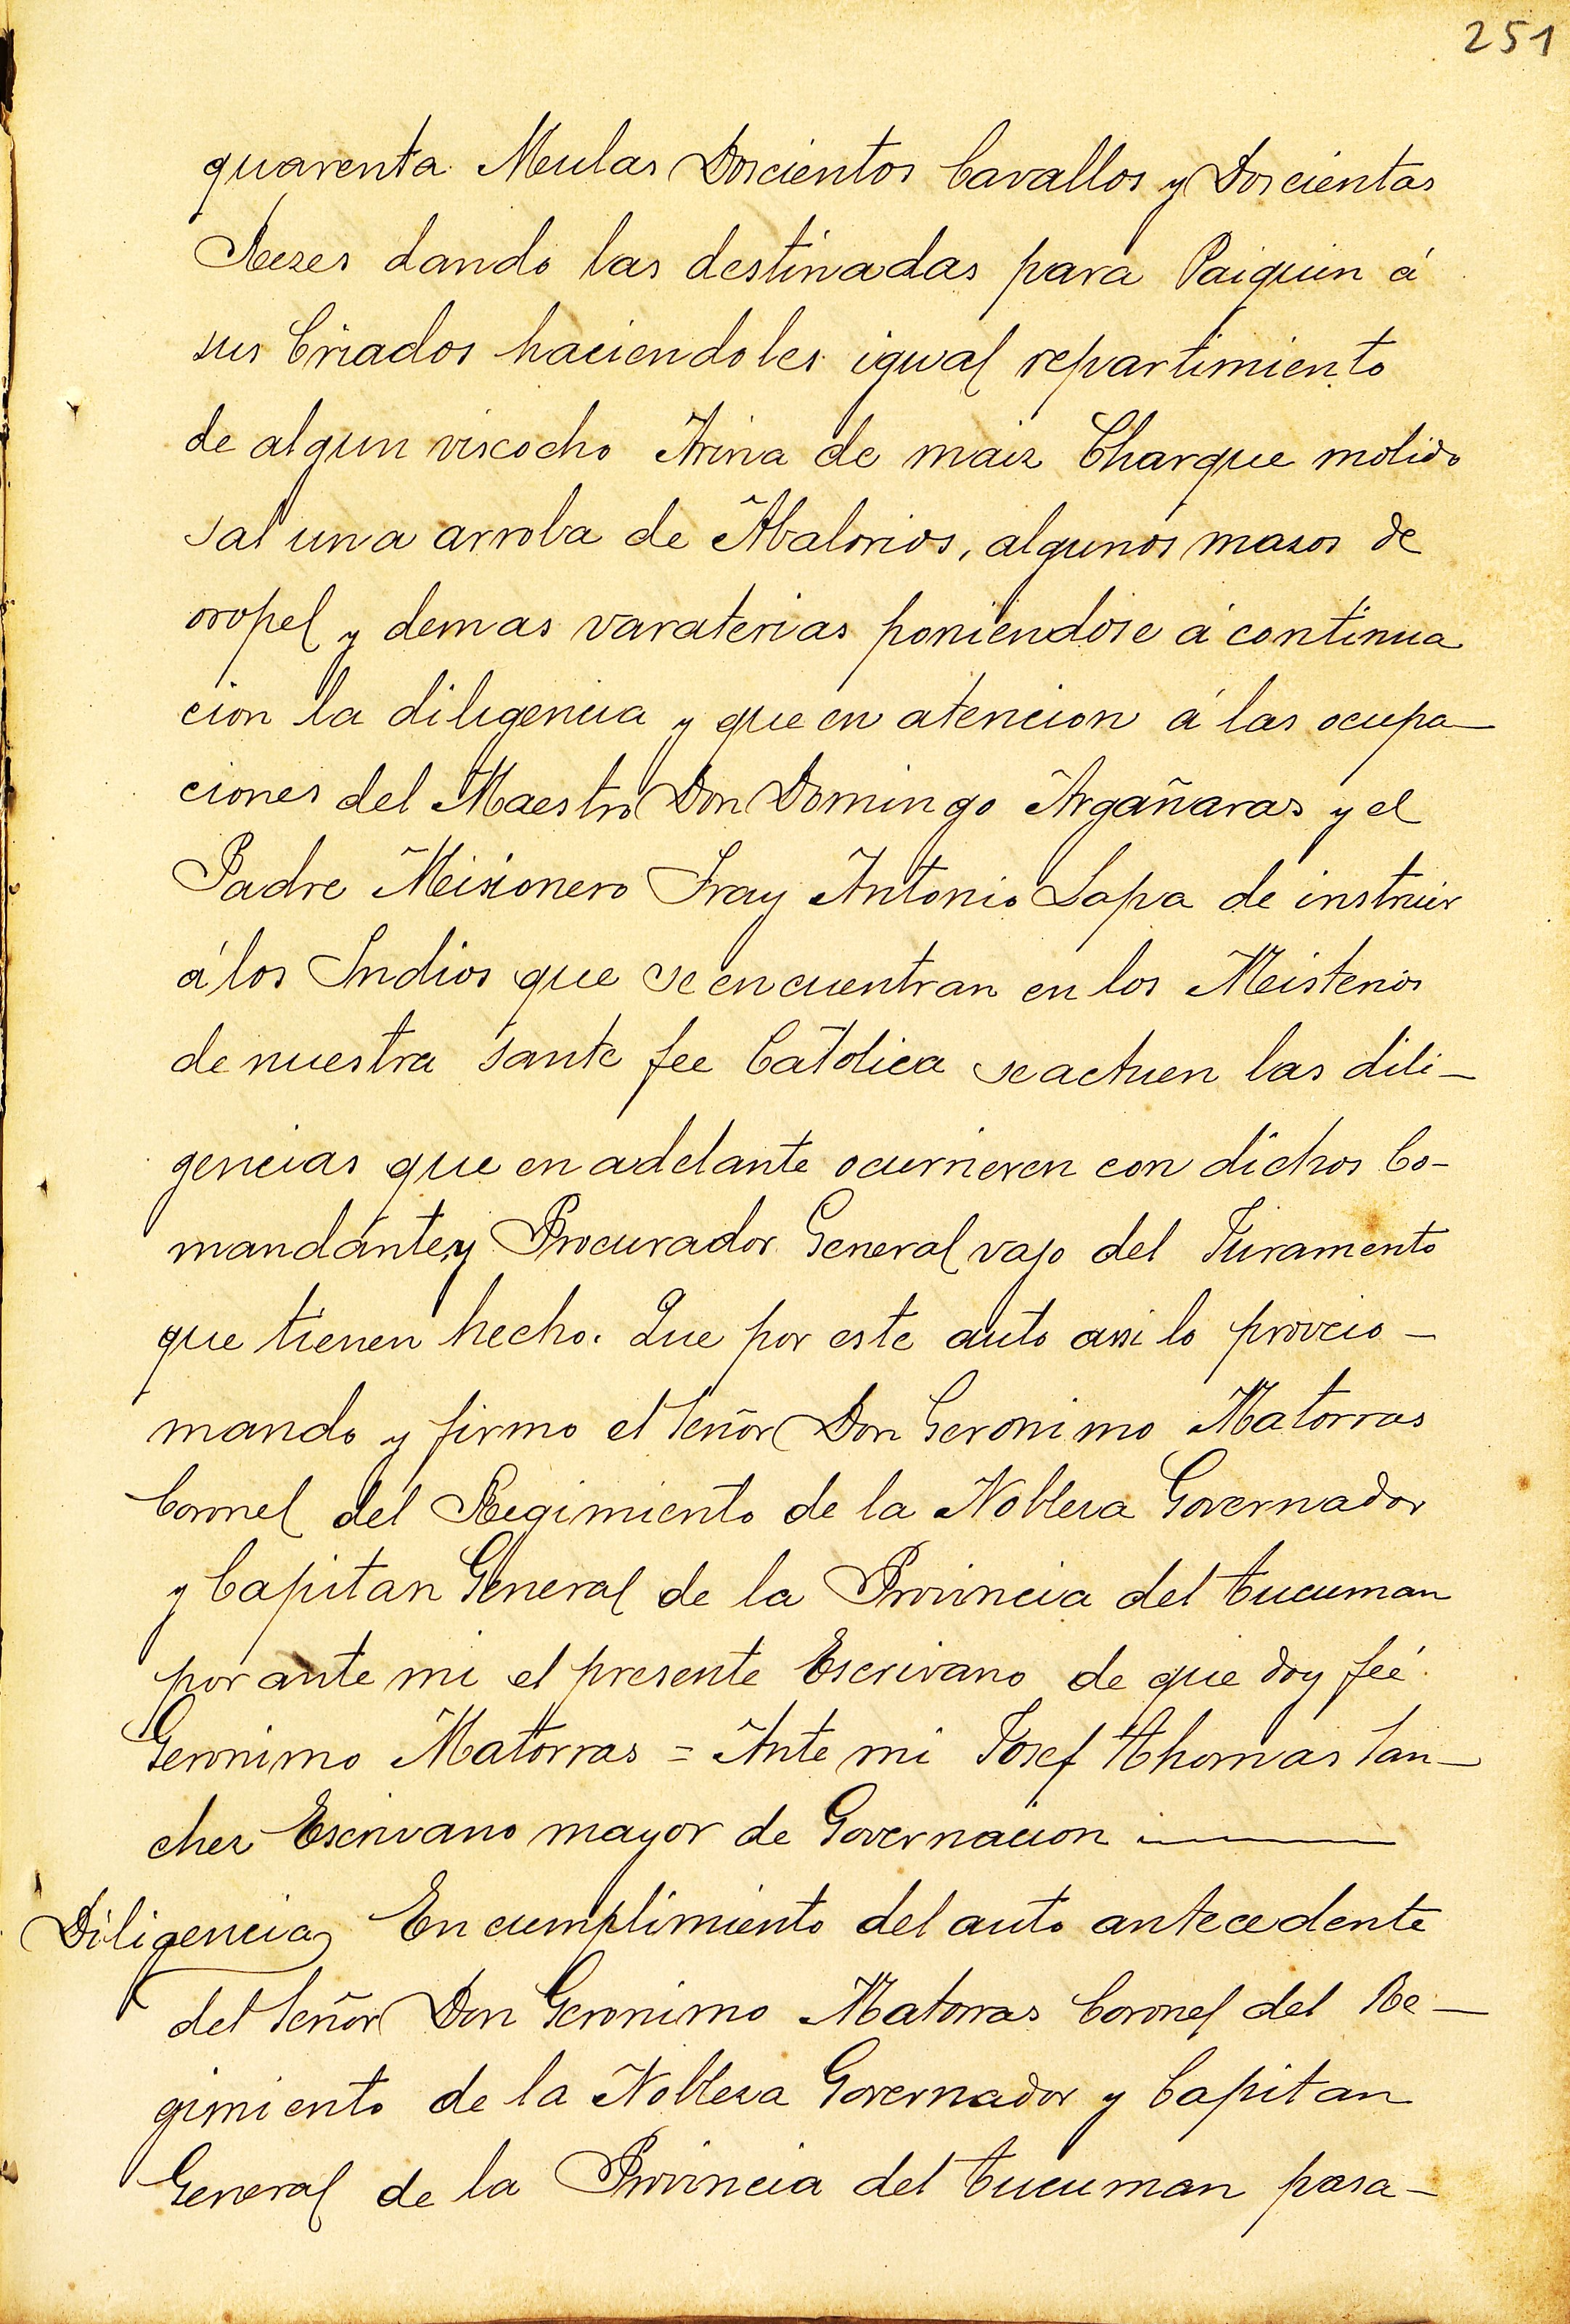 251
quarenta Mulas Doscientos Cavallos y Doscientas
Rezes dando las destinadas para Paiquin á
sus Criados haciendoles igual repartimiento
de algun viscocho Arina de maiz Charque molido
sal una arroba de Abalorios, algunos mazos de
oropel y demas varaterias poniendose á continua
cion la diligencia y que en atencion á las ocupa—
ciones del Maestro Don Domingo Argañaras y el
Padre Misionero Fray Antonio Lapa de instruir
á los Indios que se encuentran en los Misterios
de nuestra sante fee Catolica se actuen las dili—
gencias que en adelante ocurrieren con dichos Co-
mandante y Procurador General vajo del Juramento
que tienen hecho. Que por este auto assi lo proveio —
mando y firmo el Señor Don Geronimo Matorras
Coronel del Regimiento de la Nobleza Governador
y Capitan General de la Provincia del Tucuman
por ante mi el presente Escrivano de que doy feé
Geronimo Matorras = Ante mi Josef Thomas San—
chez Escrivano mayor de Governacion ———
Diligencia En cumplimiento del auto antecedente
del Señor Don Geronimo Matorras Coronel del Re—
gimiento de la Nobleza Governador y Capitan
General de la Provincia del Tucuman pasa—